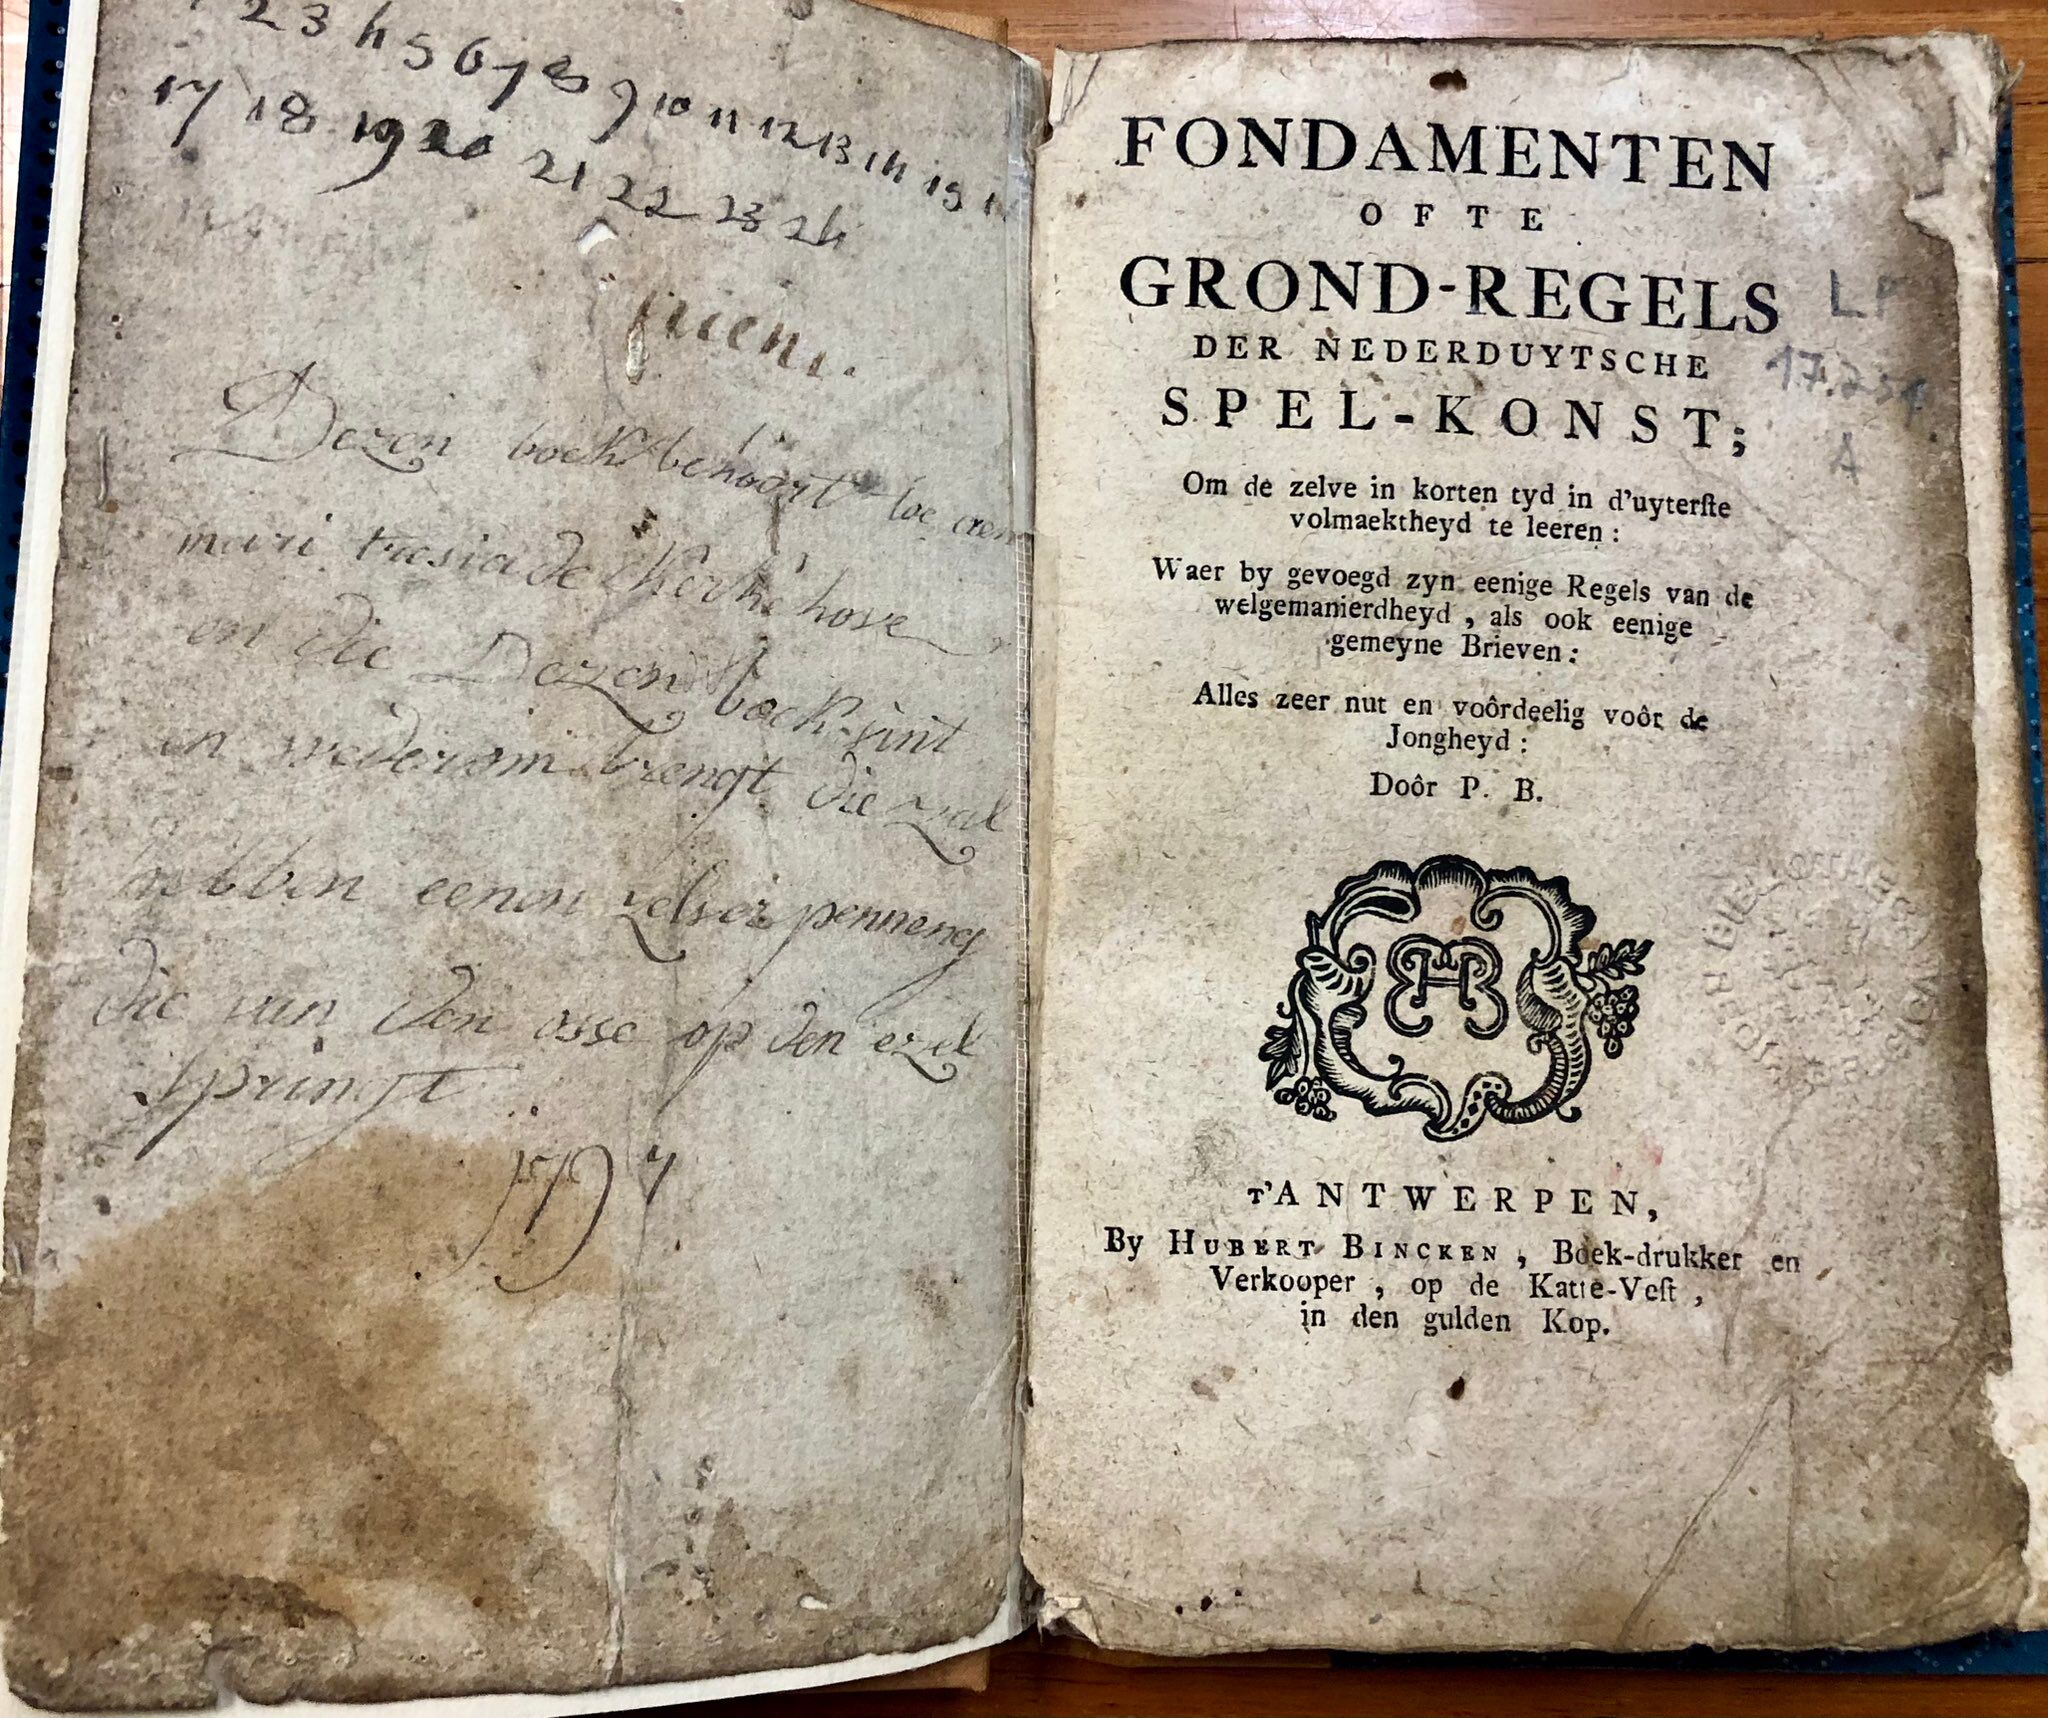 2 3 4 5 6 7 8 9 10 11 12 13 14 15
17 18 19 20 21 22 23 24
Dezen boek behoort toe aen
mari tresia de kerkhove
en die Dezen boek vint
en wederom brengt die zal
hebben eenen zelver penneng
die van den osse op den ezel
springt
FONDAMENTEN
OFTE
GROND-REGELS
DER NEDERDUYTSCHE
SPEL-KONST;
Om de zelve in korten tyd in d'uyterſte
volmaektheyd te leeren :
Waer by gevoegd zyn eenige Regels van de
welgemanierdheyd , als ook eenige
gemeyne Brieven :
Alles zeer nut en voôrdeelig voôr de
Jongheyd :
Doôr P. B.
HB
T'ANTWERPEN,
By HUBERT BINCKEN , Boek-drukker en
Verkooper , op de Katte-Veſt ,
in den gulden Kop.
LP
17.234
A